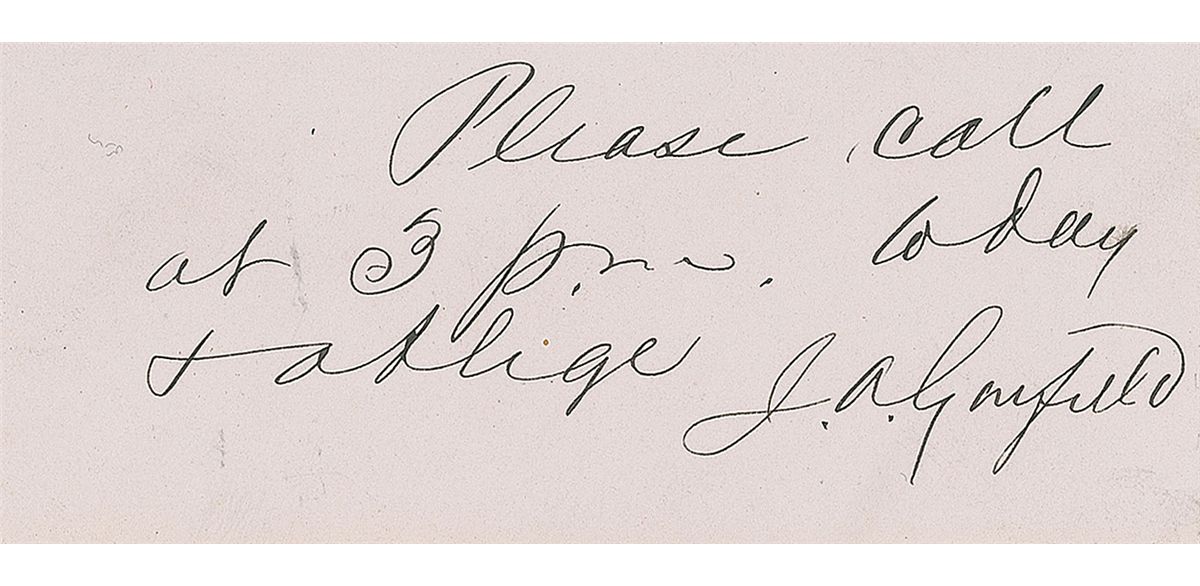 Please call
at 3 p.m. today
& oblige J. A. Garfield